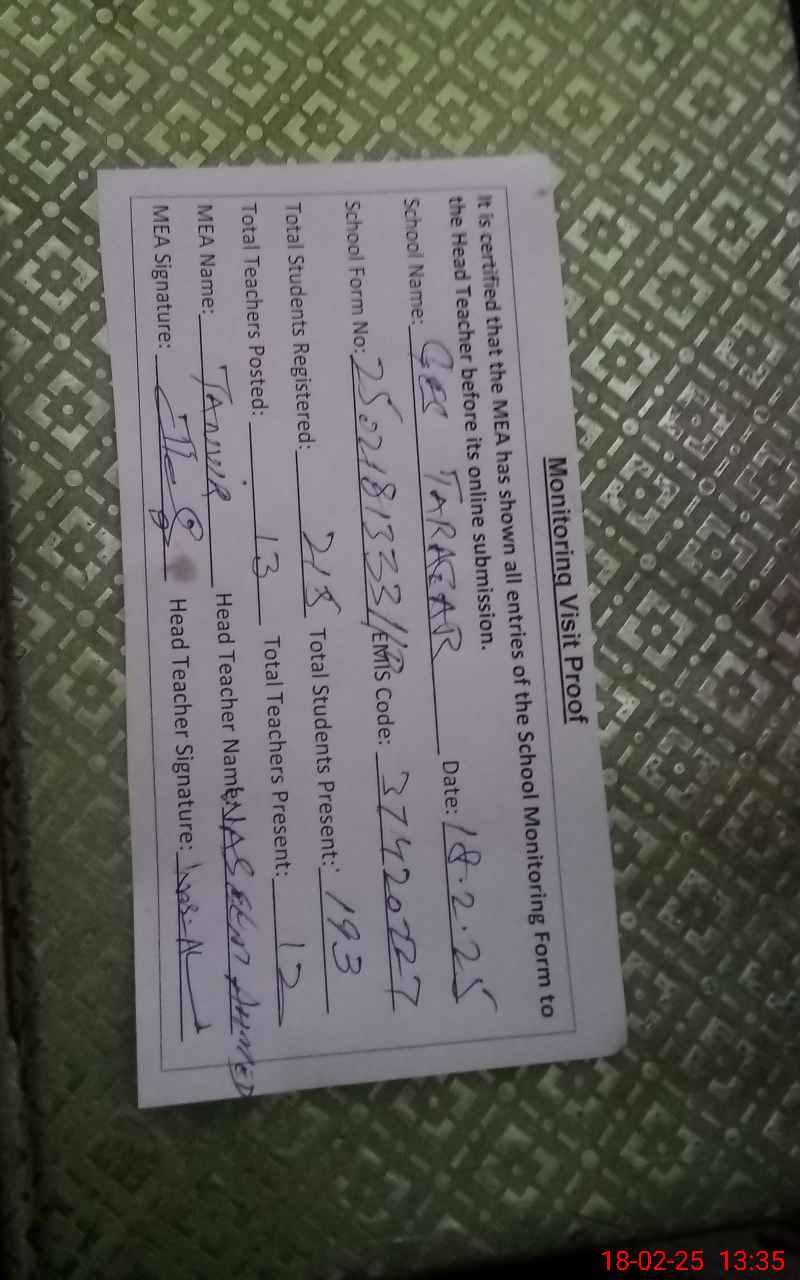 Monitoring Visit Proof
It is certified that the MEA has shown all entries of the School Monitoring Form to
the Head Teacher before its online submission.
School Name: GES TARAGAR Date: 18.2.25
School Form No: EMIS Code: 37420727
Total Students Registered: 218 Total Students Present: 193
Total Teachers Posted: 13 Total Teachers Present: 12
MEA Name: TANVIR Head Teacher Name: NASEEM AHMED
MEA Signature: Head Teacher Signature:
18-02-25 13:35